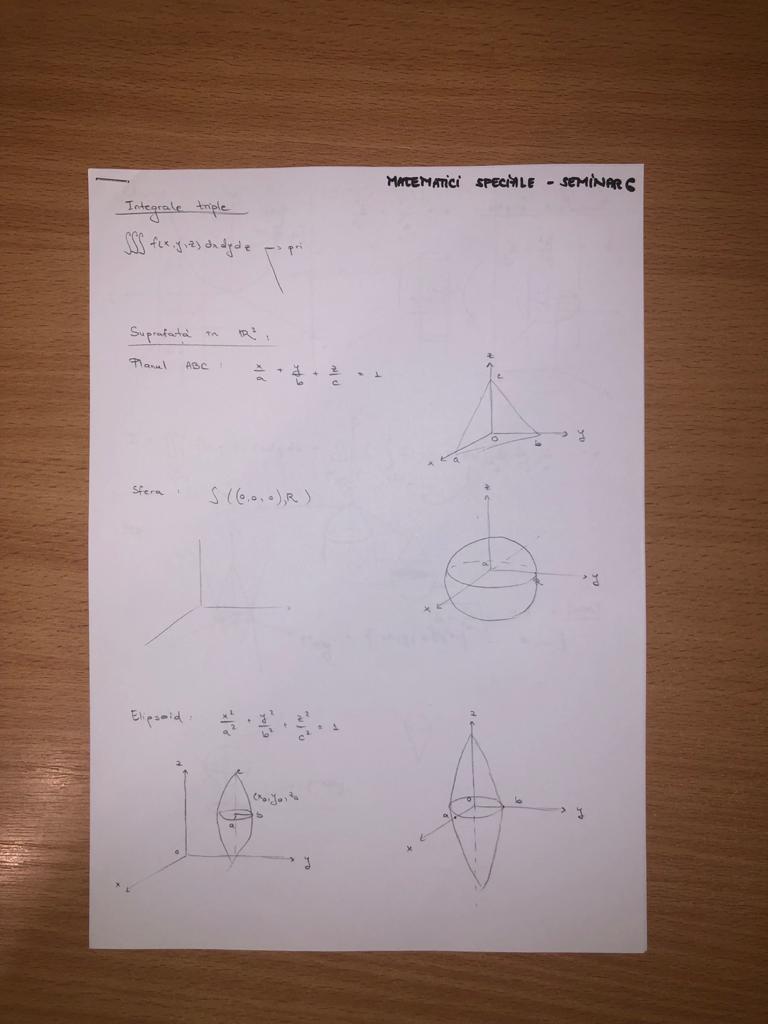 MATEMATICI SPECIALE - SEMINAR 6
Integrale triple
∭ f(x,y,z) dx dy dz → pri
Suprafață în ℝ³:
Planul ABC: x/a + y/b + z/c = 1
z
c
O
b
y
a
x
Sfera: S((0,0,0),R)
z
y
x
Elipsoid: x²/a² + y²/b² + z²/c² = 1
z
c
(x₀,y₀,z₀
a
b
o
y
x
z
o
b
y
a
x